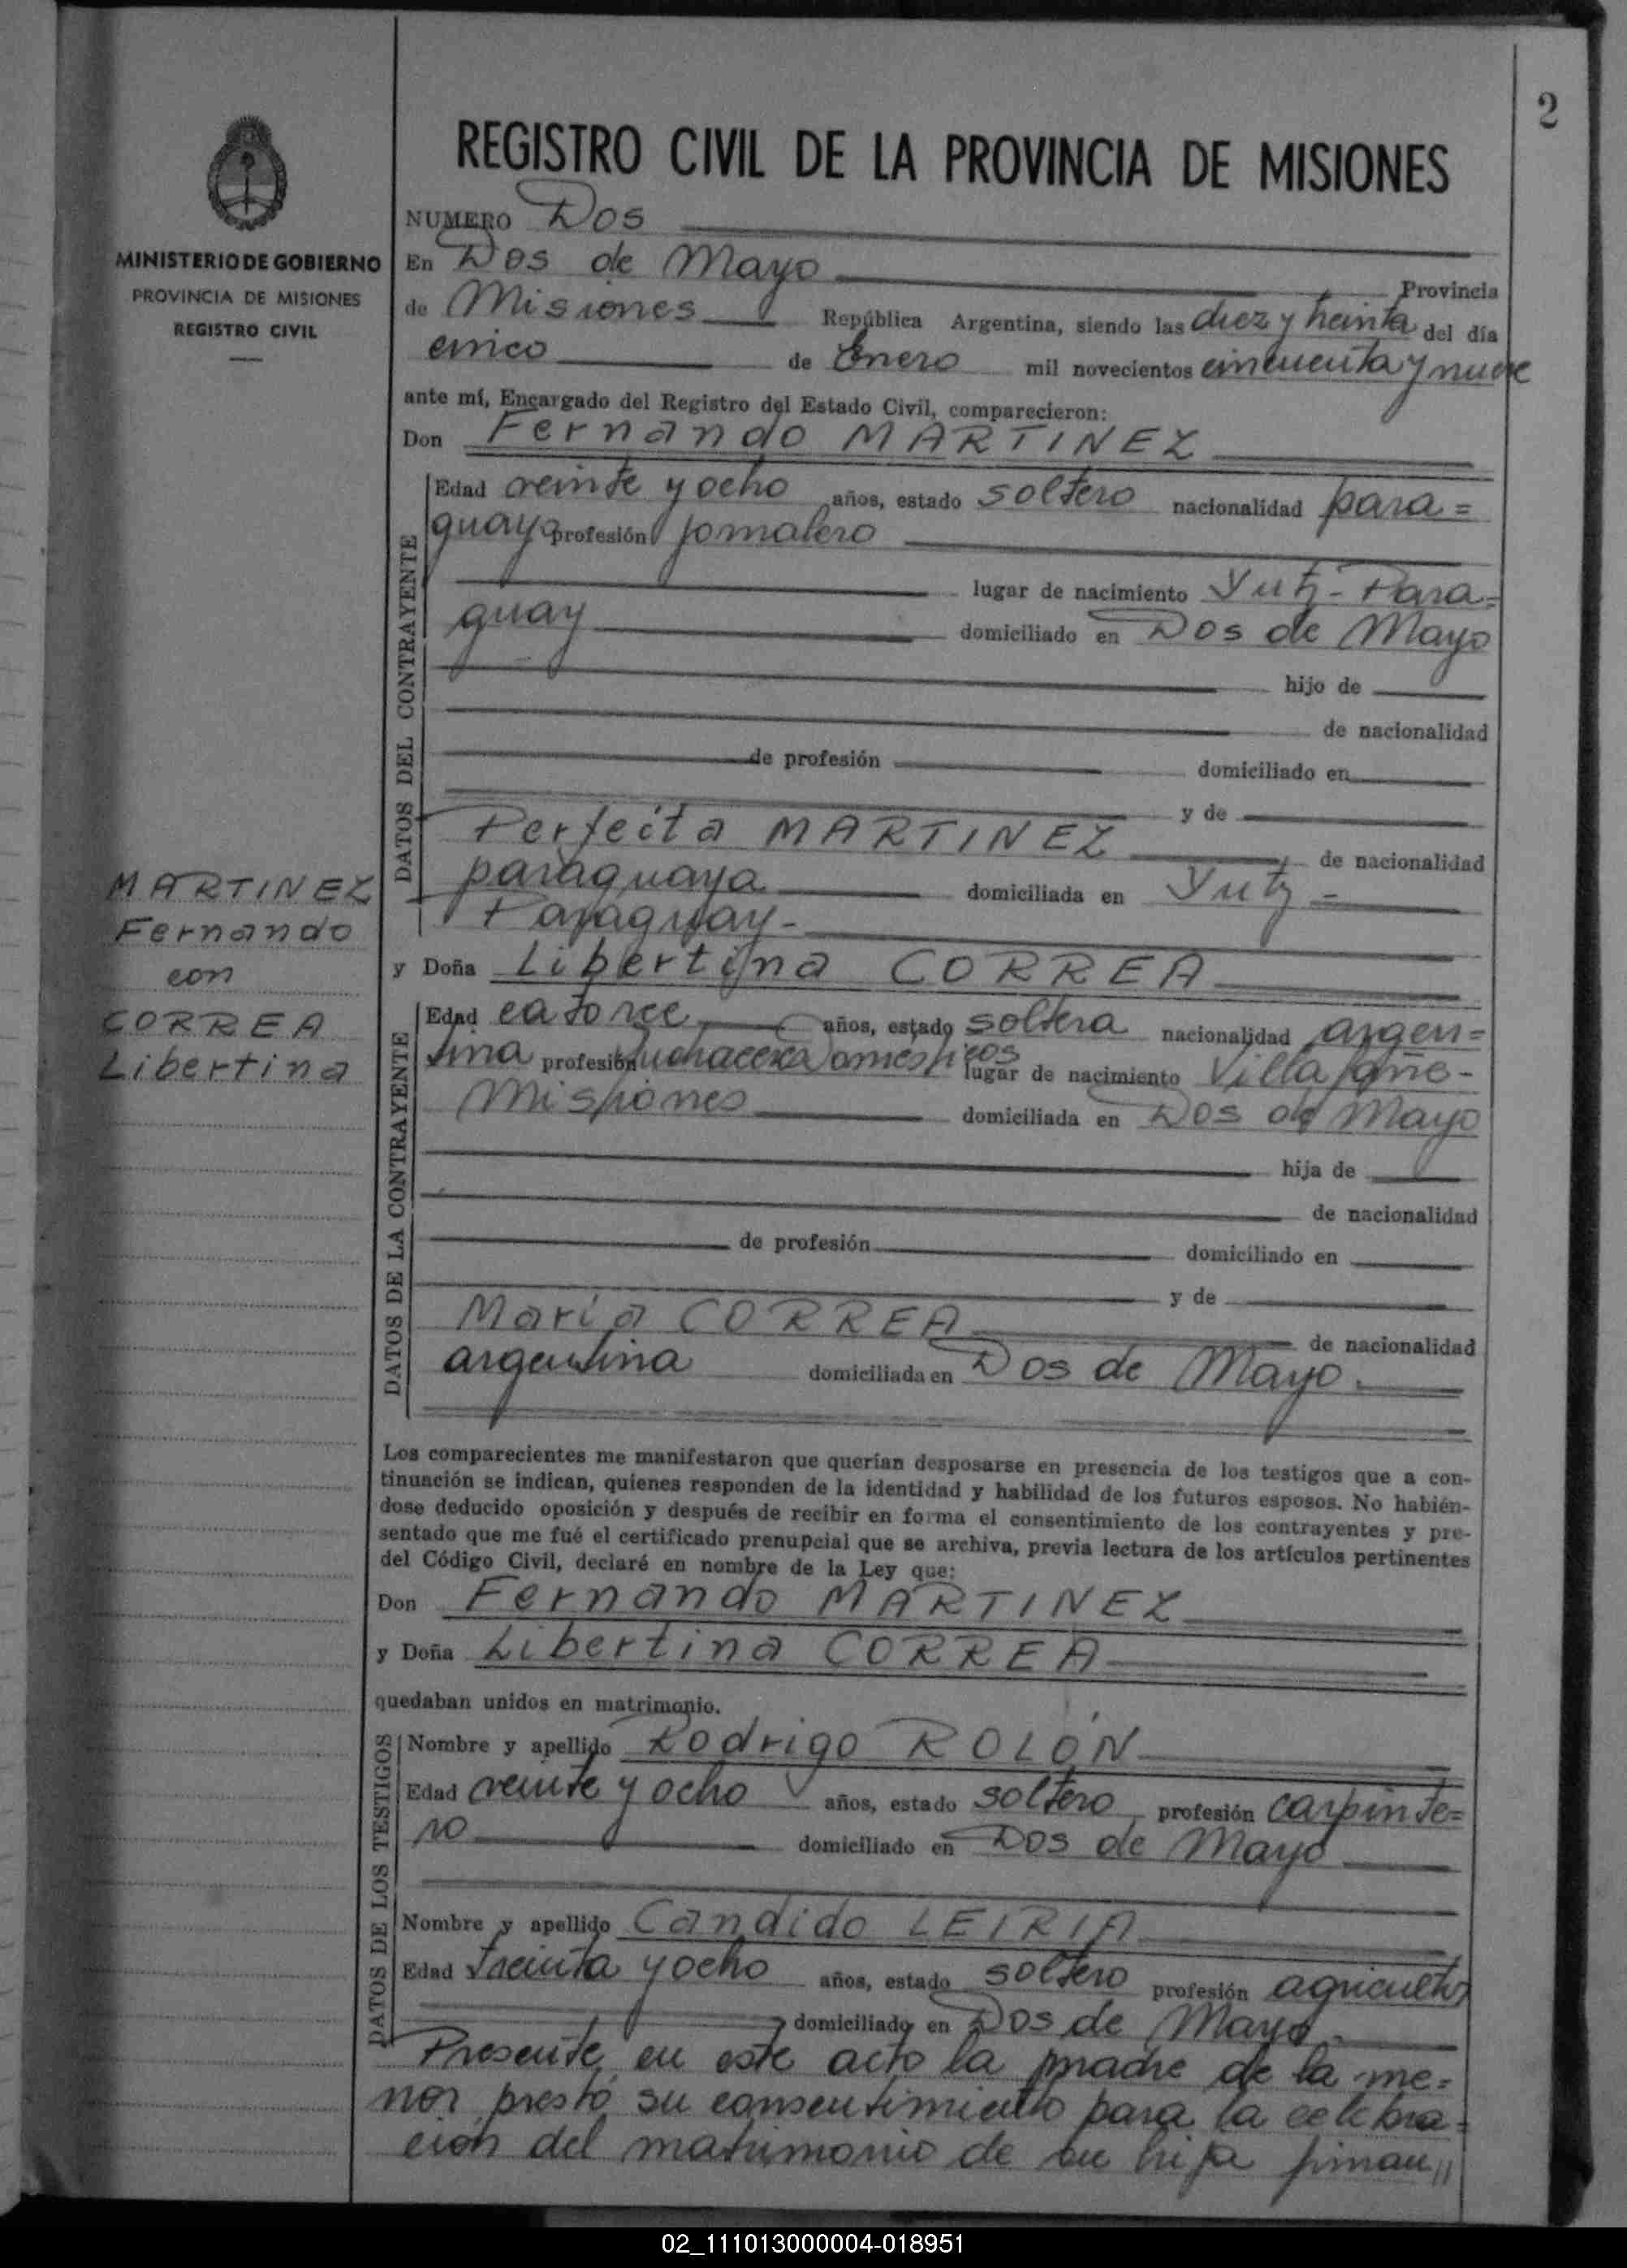 2
REGISTRO CIVIL DE LA PROVINCIA DE MISIONES
MINISTERIO DE GOBIERNO
PROVINCIA DE MISIONES
REGISTRO CIVIL
NUMERO Dos
En Dos de Mayo Provincia
de Misiones República Argentina, siendo las diez y treinta del día
cinco de Enero mil novecientos cincuenta y nueve
ante mí, Encargado del Registro del Estado Civil, comparecieron:
Don Fernando MARTINEZ
DATOS DEL CONTRAYENTE
Edad veinte y ocho años, estado soltero nacionalidad para=
guaya profesión jornalero
lugar de nacimiento Yuty - Para=
guay domiciliado en Dos de Mayo
hijo de
de nacionalidad
de profesión domiciliado en
y de
Perfecta MARTINEZ de nacionalidad
paraguaya domiciliada en Yuty -
Paraguay -
MARTINEZ
Fernando
con
CORREA
Libertina
y Doña Libertina CORREA
DATOS DE LA CONTRAYENTE
Edad catorce años, estado soltera nacionalidad argen=
tina profesión quehaceres domésticos lugar de nacimiento Villafañe -
Misiones domiciliada en Dos de Mayo
hija de
de nacionalidad
de profesión domiciliado en
y de
Maria CORREA de nacionalidad
argentina domiciliada en Dos de Mayo.
Los comparecientes me manifestaron que querían desposarse en presencia de los testigos que a con-
tinuación se indican, quienes responden de la identidad y habilidad de los futuros esposos. No habién-
dose deducido oposición y después de recibir en forma el consentimiento de los contrayentes y pre-
sentado que me fué el certificado prenupcial que se archiva, previa lectura de los artículos pertinentes
del Código Civil, declaré en nombre de la Ley que:
Don Fernando MARTINEZ
y Doña Libertina CORREA
quedaban unidos en matrimonio.
DATOS DE LOS TESTIGOS
Nombre y apellido Rodrigo ROLÓN
Edad veinte y ocho años, estado soltero profesión carpinte=
ro domiciliado en Dos de Mayo
Nombre y apellido Candido LEIRIA
Edad treinta y ocho años, estado soltero profesión agricultor
domiciliado en Dos de Mayo -
Presente en este acto la madre de la me=
nor prestó su consentimiento para la celebra=
ción del matrimonio de su hija firman //
02_111013000004-018951